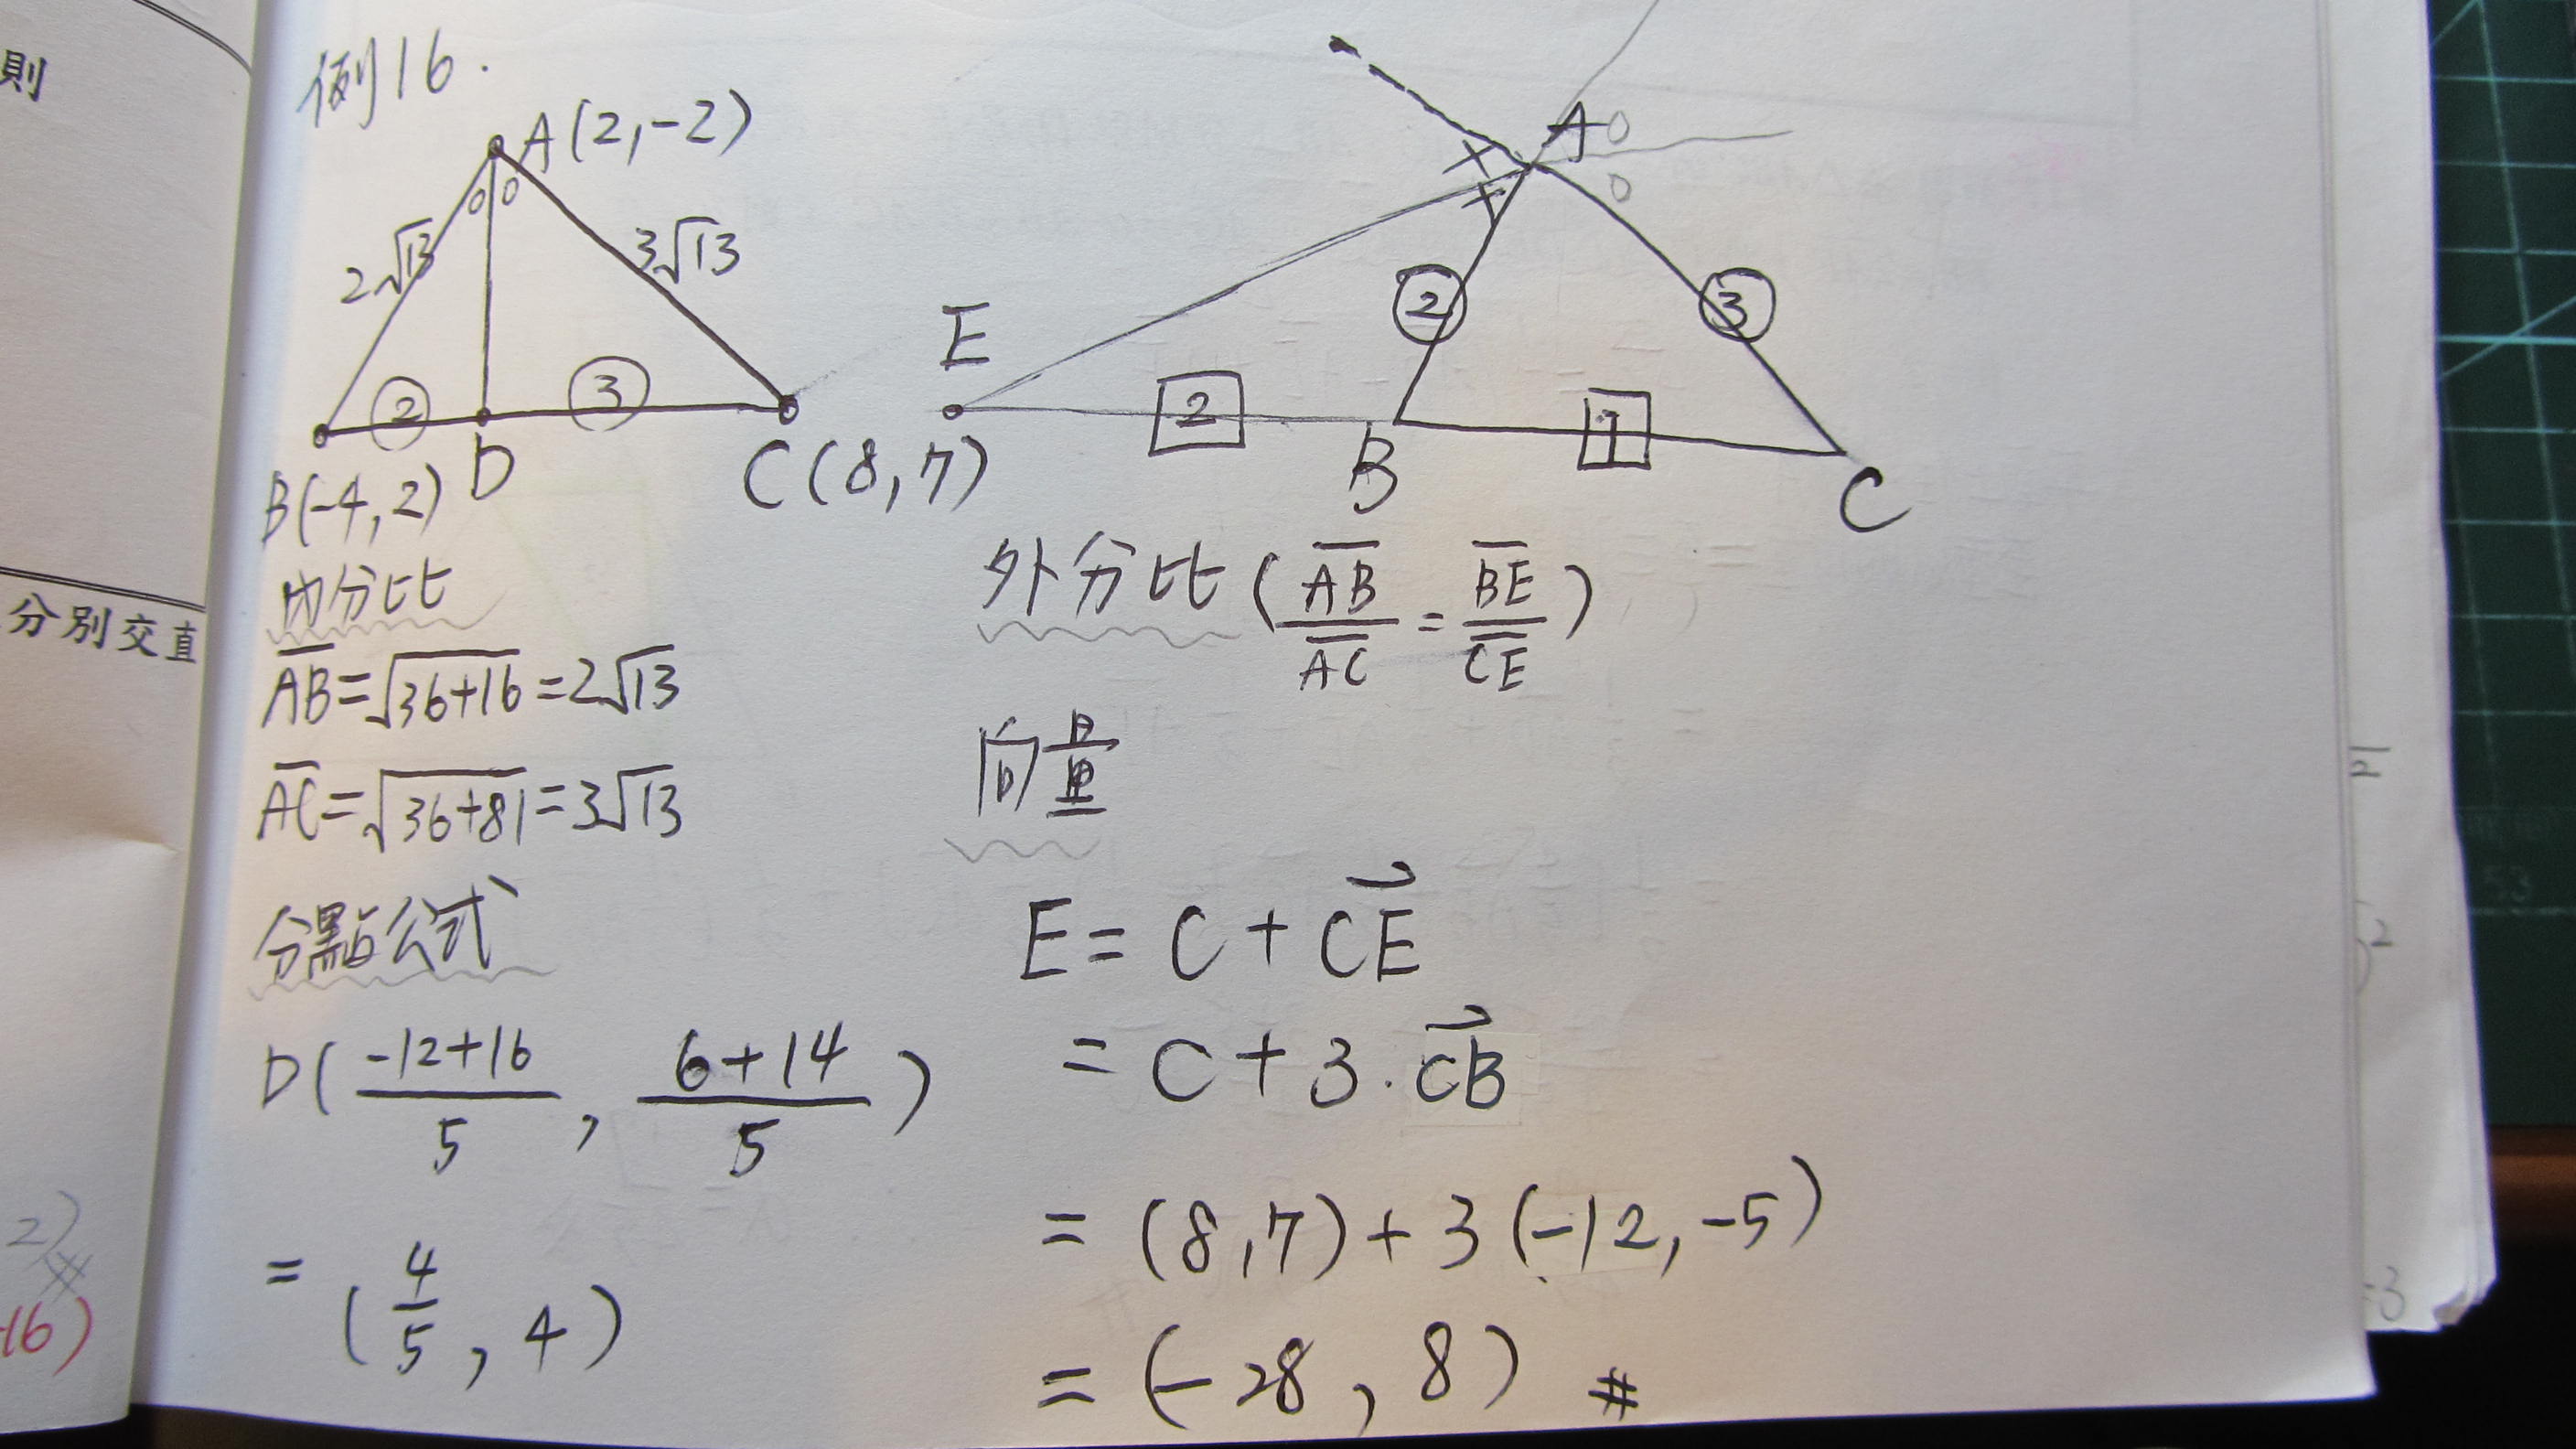 則
分別交直
2)
16)
例16.
A(2,-2)
2√13
3√13
② ③
B(-4,2) D C(8,7)
內分比
AB=√36+16=2√13
AC=√36+81=3√13
分點公式
D(-12+16/5, 6+14/5)
=(4/5, 4)
A
② ③
E
2 1
B C
外分比(AB/AC=BE/CE)
向量
E=C+CE
=C+3·CB
=(8,7)+3(-12,-5)
=(-28,8)#
53